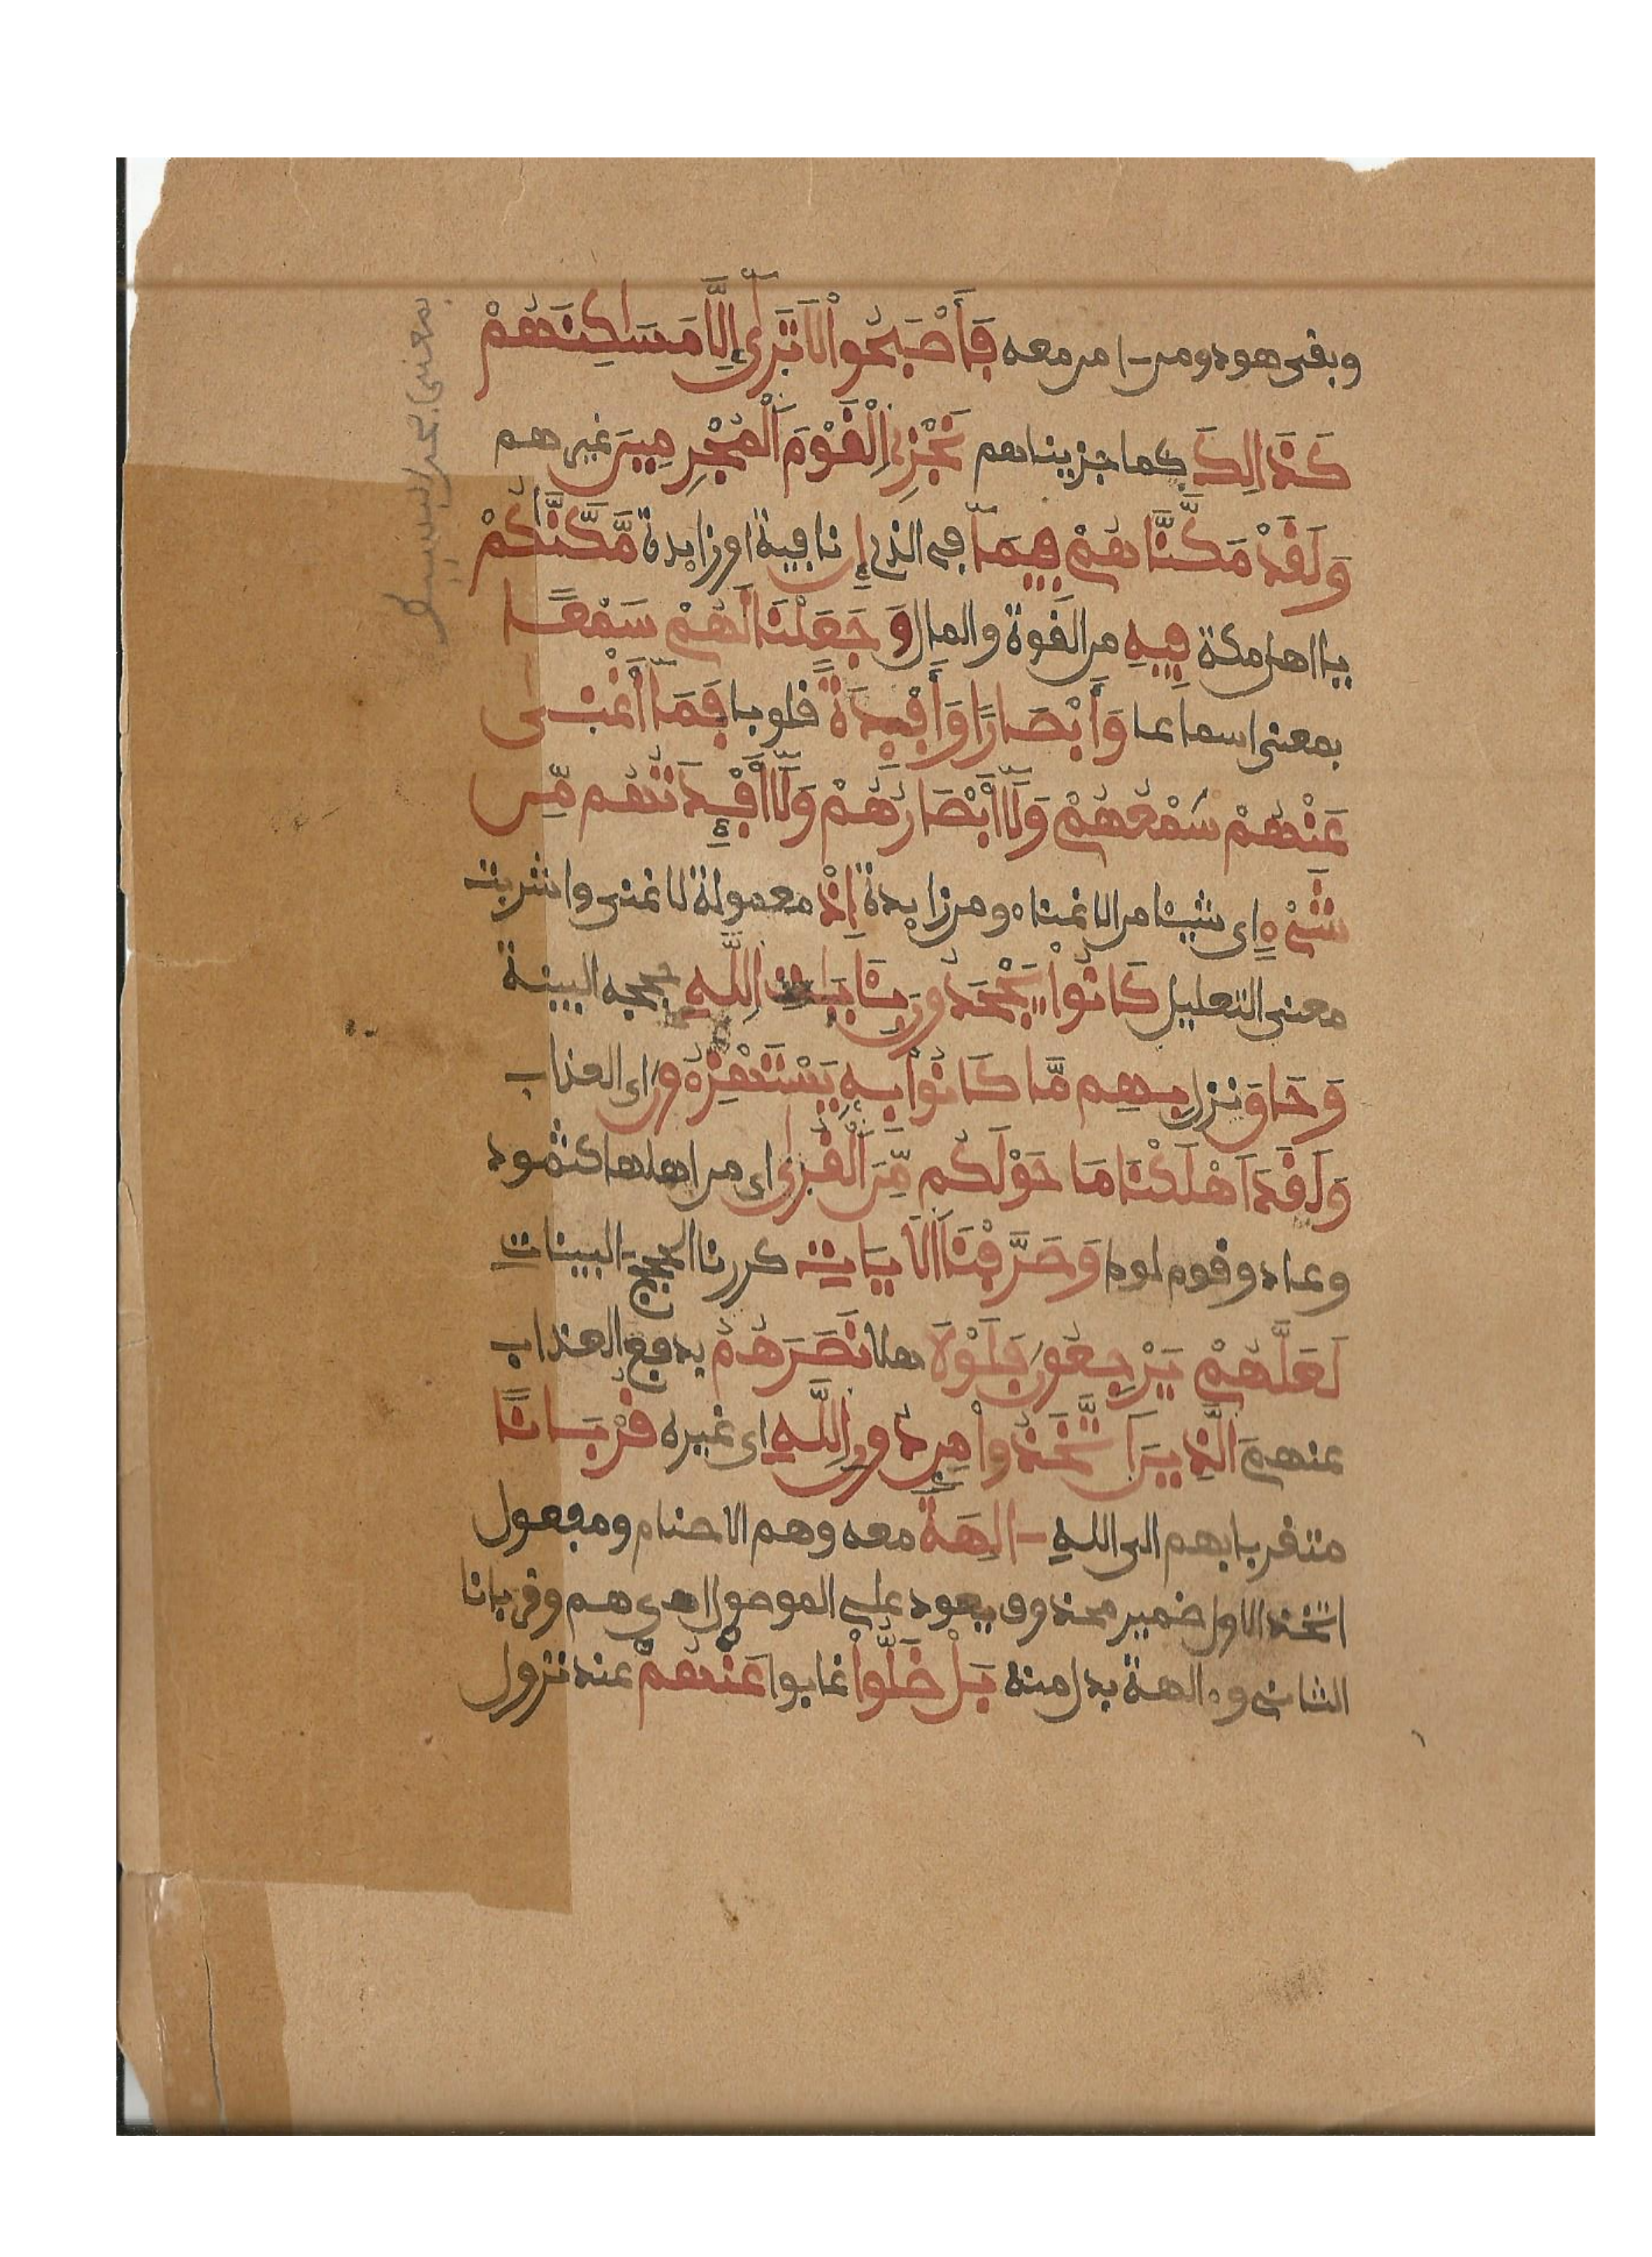 وبقى هود ومن ءامن معه فَأَصْبَحُواْ لَا تَرَىٰٓ إِلَّا مَسَاكِنَهُمْ
كَذَالِكَ كما جزيناهم نَجْزِى اِلْقَوْمَ اَلْمُجْرِمِينَ غيرهم
وَلَقَدْ مَكَّنَّاهُمْ فِيمَآ في الذى إِن نافية او زايدة مَّكَّنَّاكُمْ
يا اهل مكة فِيهِ من القوة والمال وَجَعَلْنَا لَهُمْ سَمْعًا
بمعنى اسماعا وَأَبْصَارًا وَأَفْـِٕدَةً قلوبا فَمَآ أَغْنَىٰ
عَنْهُمْ سَمْعُهُمْ وَلَآ أَبْصَارُهُمْ وَلَآ أَفْـِٕدَتُهُم مِّن
شَىْءٍ اى شيئا من الاغناء ومن زايدة إِذْ معمولة لاغنى واشربت
معنى التعليل كَانُواْ يَجْحَدُونَ بِـَٔايَاتِ اِللَّهِ حججه البينة
وَحَاقَ نزل بِهِم مَّا كَانُواْ بِهِ يَسْتَهْزِءُونَ اى العذاب
وَلَقَدَ اَهْلَكْنَا مَا حَوْلَكُم مِّنَ اَلْقُرَىٰ اى من اهلها كثمود
وعاد وقوم لوط وَصَرَّفْنَا اَلَايَاتِ كررنا الحجج البينات
لَعَلَّهُمْ يَرْجِعُونَ فَلَوْلَا هلا نَصَرَهُمُ بدفع العذاب
عنهم اَلَّذِينَ اَتَّخَذُواْ مِن دُونِ اِللَّهِ اى غيره قُرْبَانًا
متقربا بهم الى الله ءالِهَةً معه وهم الاصنام ومفعول
اتخذ الاول ضمير محذوف يعود على الموصول اى هم وقربانا
الثانى وءالهة بدل منه بَلْ ضَلُّواْ غابوا عَنْهُمْ عند نزول